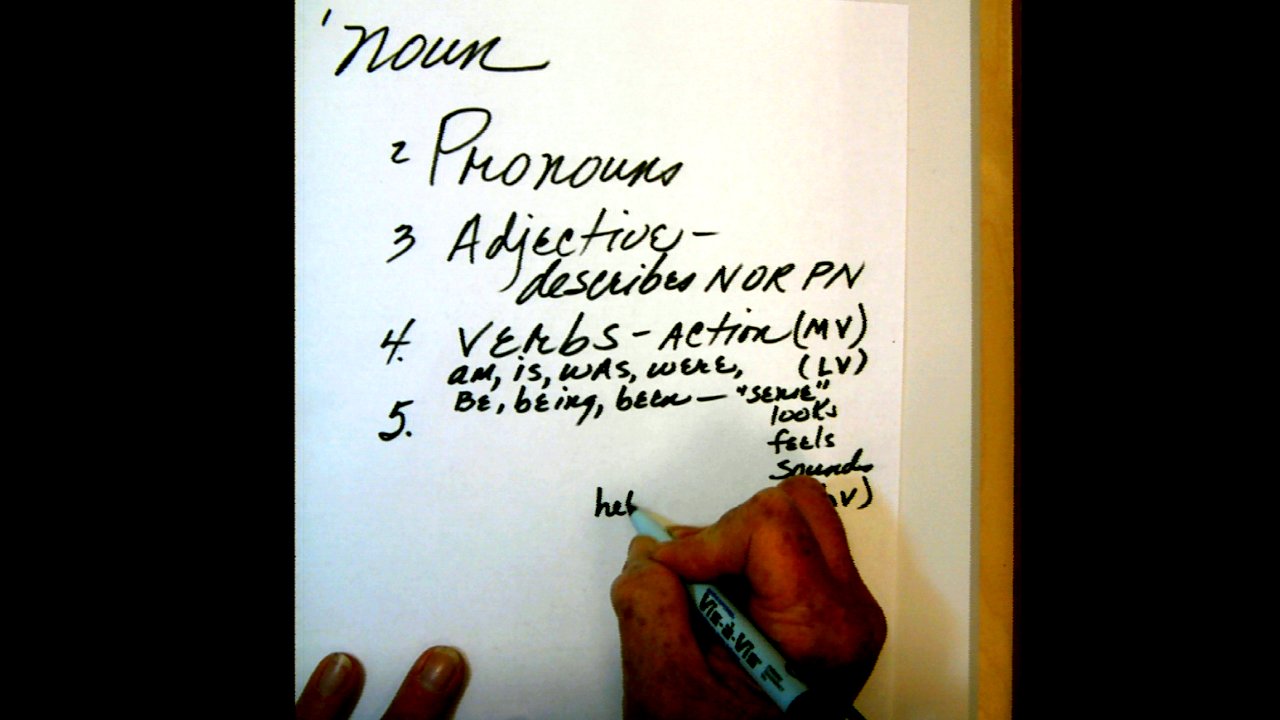 1 noun
2 Pronouns
3 Adjective -
describes N OR PN
4. Verbs - Action (MV)
am, is, was, were, (LV)
Be, being, been - "sense"
5.
looks
feels
sounds
hV)
hel
VIS-à-VIS